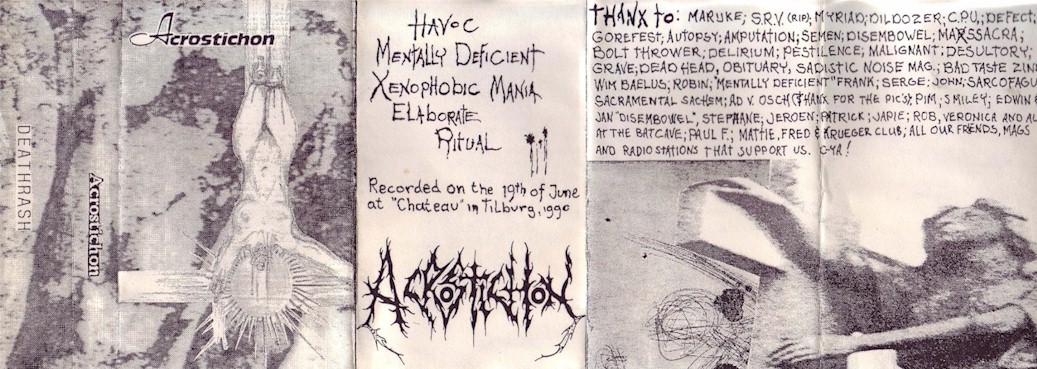 DEATHRASH
Acrostichon
Acrostichon
HAVOC
MENTALLY DEFICIENT
XENOPHOBIC MANIA
ELABORATE
RITUAL
Recorded on the 19th of June
at "Chateau" in Tilburg, 1990
ACROSTICHON
THANX to: MARIJKE; S.R.V. (RIP); MYRIAD; DILDOZER; C.P.U.; DEFECT;
GOREFEST; AUTOPSY; AMPUTATION; SEMEN; DISEMBOWEL; MARSSACRA;
BOLT THROWER; DELIRIUM; PESTILENCE, MALIGNANT; DESULTORY;
GRAVE; DEAD HEAD, OBITUARY, SADISTIC NOISE MAG.; BAD TASTE ZINE
WIM BAELUS; ROBIN; "MENTALLY DEFICIENT" FRANK; SERGE; JOHN; SARCOFAGU
SACRAMENTAL SACHEM; AD V. OSCH (THANX FOR THE PICS); PIM; SMILEY; EDWIN &
JAN "DISEMBOWEL", STEPHANE; JEROEN; PATRICK; JAPIE; ROB, VERONICA AND AL
AT THE BATCAVE; PAUL F.; MATTIE, FRED & KRUEGER CLUB; ALL OUR FRIENDS, MAGS
AND RADIO STATIONS THAT SUPPORT US. C-YA!